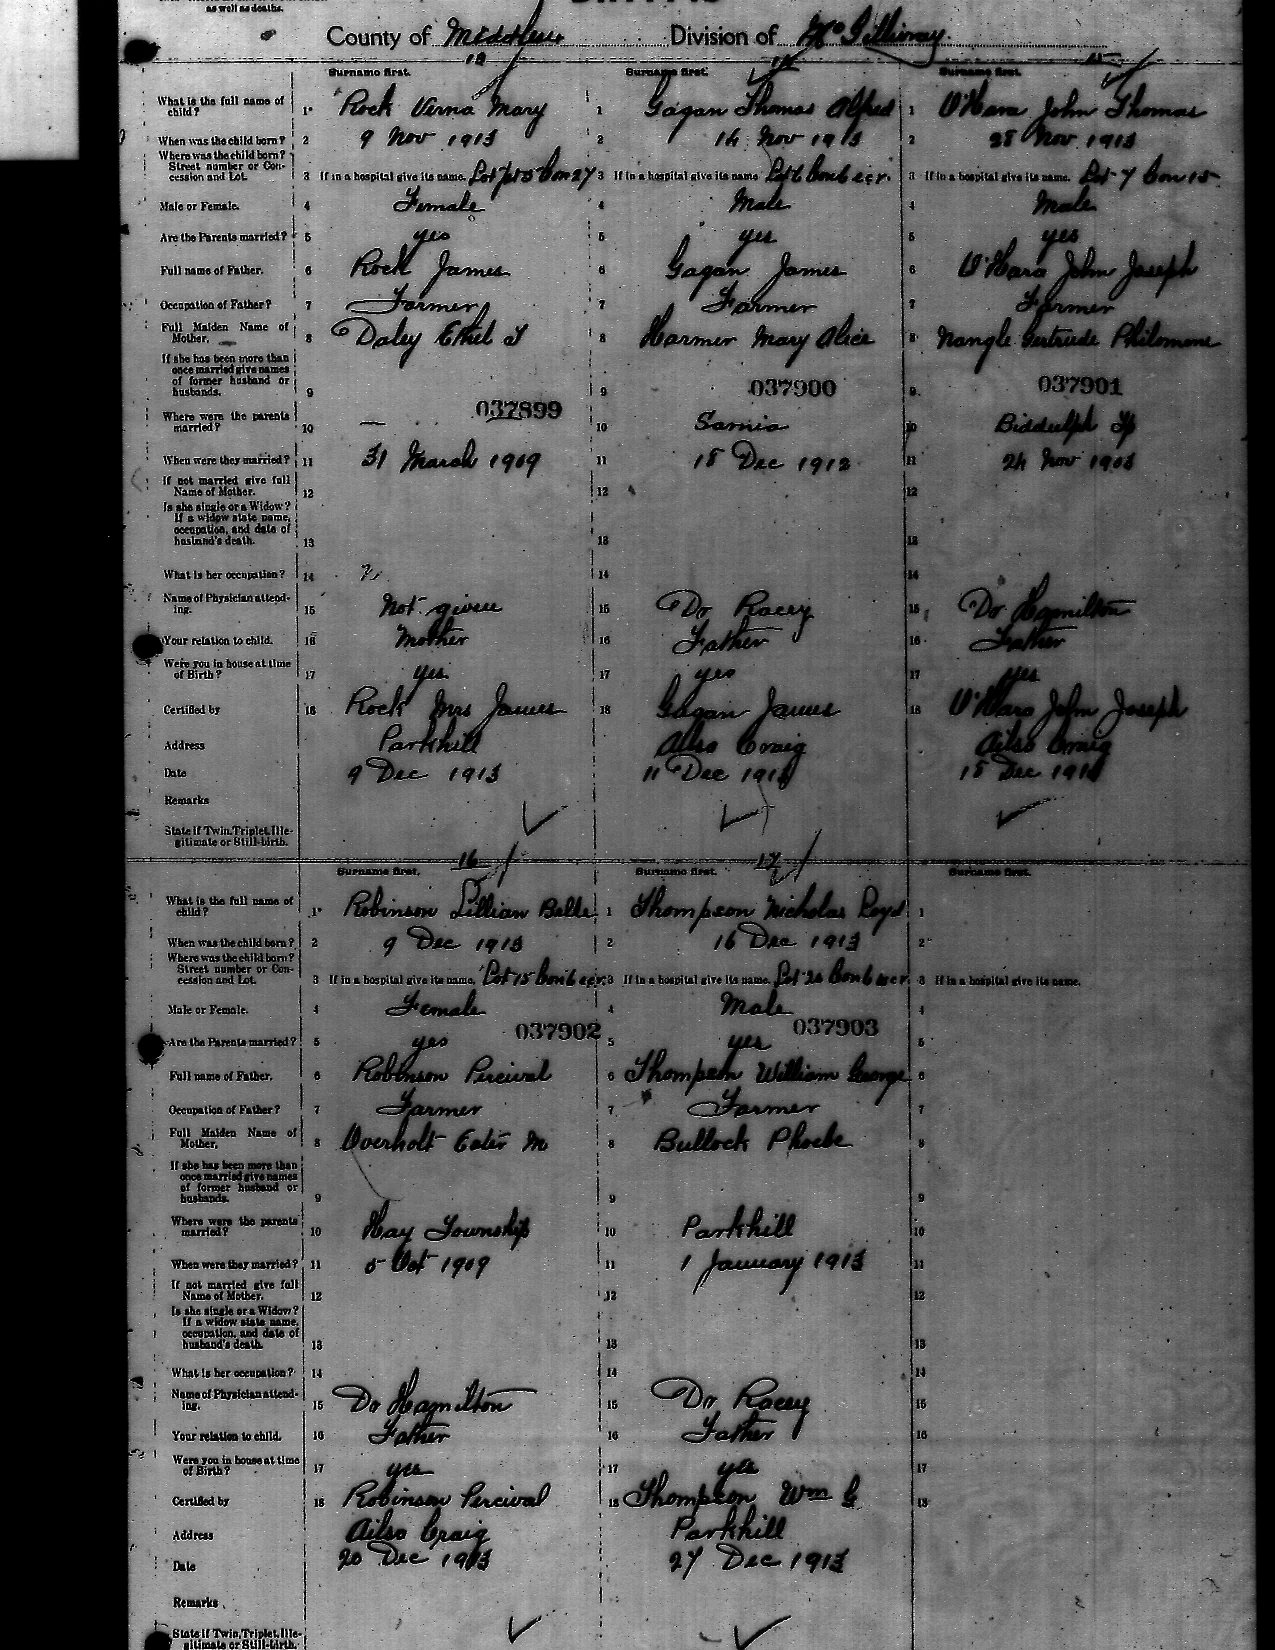 as well as deaths.
County of Middlesex Division of McGillivray
Surname first. Surname first. Surname first.
What is the full name of child? 1 Rock Verna Mary 1 Gagan Thomas Alfred 1 O'Hara John Thomas
When was the child born? 2 9 Nov 1913 2 14 Nov 1913 2 28 Nov 1913
Where was the child born?
Street number or Concession and Lot. 3 If in a hospital give its name. Con 27 3 If in a hospital give its name Lot 6 Con 6 ecr. 3 If in a hospital give its name. Lot 7 Con 15
Male or Female. 4 Female 4 Male 4 Male
Are the Parents married? 5 yes 5 yes 5 yes
Full name of Father. 6 Rock James 6 Gagan James 6 O'Hara John Joseph
Occupation of Father? 7 Farmer 7 Farmer 7 Farmer
Full Maiden Name of Mother. 8 Daley Ethel 8 Harmer Mary Alice 8 Nangle Gertrude Philomene
If she has been more than once married give names of former husband or husbands. 9 037899 9 037900 9 037901
Where were the parents married? 10 — 10 Sarnia 10 Biddulph Tp
When were they married? 11 31 March 1909 11 18 Dec 1912 11 24 Nov
If not married give full Name of Mother. 12 12 12
Is she single or a Widow? If a widow state name, occupation, and date of husband's death. 13 13 13
What is her occupation? 14 14 14
Name of Physician attending. 15 Not given 15 Dr Racey 15 Dr Hamilton
Your relation to child. 16 Mother 16 Father 16 Father
Were you in house at time of Birth? 17 yes 17 yes 17 yes
Certified by 18 Rock Mrs James 18 Gagan James 18 O'Hara John Joseph
Address Parkhill Ailsa Craig Ailsa Craig
Date 9 Dec 1913 11 Dec 1913 15 Dec 1913
Remarks
State if Twin, Triplet, Illegitimate or Still-birth.
16 17
Surname first. Surname first. Surname first.
What is the full name of child? 1 Robinson Lillian Belle 1 Thompson Nicholas Loyd 1
When was the child born? 2 9 Dec 1913 2 16 Dec 1913 2
Where was the child born?
Street number or Concession and Lot. 3 If in a hospital give its name. Lot 15 Con 6 ecr 3 If in a hospital give its name. Lot 20 Con 6 wcr 3 If in a hospital give its name.
Male or Female. 4 Female 4 Male 4
Are the Parents married? 5 yes 037902 5 yes 037903 5
Full name of Father. 6 Robinson Percival 6 Thompson William George 6
Occupation of Father? 7 Farmer 7 Farmer 7
Full Maiden Name of Mother. 8 Overholt M 8 Bullock Phoebe 8
If she has been more than once married give names of former husband or husbands. 9 9 9
Where were the parents married? 10 Hay Township 10 Parkhill 10
When were they married? 11 5 Oct 1909 11 1 January 1913 11
If not married give full Name of Mother. 12 12 12
Is she single or a Widow? If a widow state name, occupation, and date of husband's death. 13 13 13
What is her occupation? 14 14 14
Name of Physician attending. 15 Dr Hamilton 15 Dr Racey 15
Your relation to child. 16 Father 16 Father 16
Were you in house at time of Birth? 17 yes 17 yes 17
Certified by 18 Robinson Percival 18 Thompson Wm G 18
Address Ailsa Craig Parkhill
Date 20 Dec 1913 27 Dec 1913
Remarks
State if Twin, Triplet, Illegitimate or Still-birth.